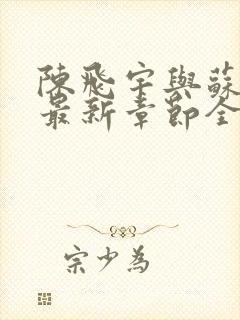 陳飛宇與蘇
最新章節全
宗少為